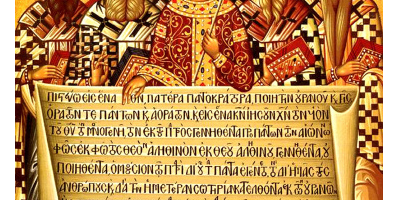 ΠΙϹΤΕΥΩ ΕΙϹ ΕΝΑ ΘΝ, ΠΑΤΕΡΑ ΠΑΝΤΟΚΡΑΤΟΡΑ, ΠΟΙΗΤΗΝ ΟΥΡΑΝΟΥ Κ ΓΗϹ
ΟΡΑΤΩΝ ΤΕ ΠΑΝΤΩΝ Κ ΑΟΡΑΤΩΝ. Κ ΕΙϹ ΕΝΑ ΚΝ ΙΗϹΟΥΝ ΧΝ ΤΟΝ ΥΝ
ΤΟΥ ΘΥ ΤΟΝ ΜΟΝΟΓΕΝΗ, ΤΟΝ ΕΚ ΤΟΥ ΠϹ ΓΕΝΝΗΘΕΝΤΑ ΠΡΟ ΠΑΝΤΩΝ ΤΩΝ ΑΙΩΝΩΝ
ΦΩϹ ΕΚ ΦΩΤΟϹ ΘΕΟΝ ΑΛΗΘΙΝΟΝ ΕΚ ΘΕΟΥ ΑΛΗΘΙΝΟΥ ΓΕΝΝΗΘΕΝΤΑ, ΟΥ
ΠΟΙΗΘΕΝΤΑ, ΟΜΟΟΥϹΙΟΝ ΤΩ ΠΑΤΡΙ ΔΙ ΟΥ ΤΑ ΠΑΝΤΑ ΕΓΕΝΕΤΟ, ΤΟΝ ΔΙ ΗΜΑϹ ΤΟΥϹ
ΑΝΘΡΩΠΟΥϹ Κ ΔΙΑ ΤΗΝ ΗΜΕΤΕΡΑΝ ϹΩΤΗΡΙΑΝ ΚΑΤΕΛΘΟΝΤΑ ΕΚ ΤΩΝ ΟΥΡΑΝΩΝ